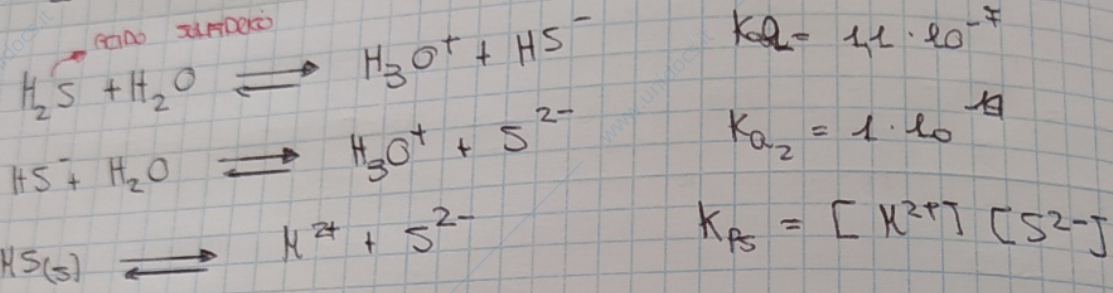 ACIDO SULFIDRICO
H₂S + H₂O ⇌ H₃O⁺ + HS⁻ Ka₁ = 1,1 · 10⁻⁷
HS⁻ + H₂O ⇌ H₃O⁺ + S²⁻ Ka₂ = 1 · 10
MS(s) ⇌ M²⁺ + S²⁻ Kps = [M²⁺] [S²⁻]